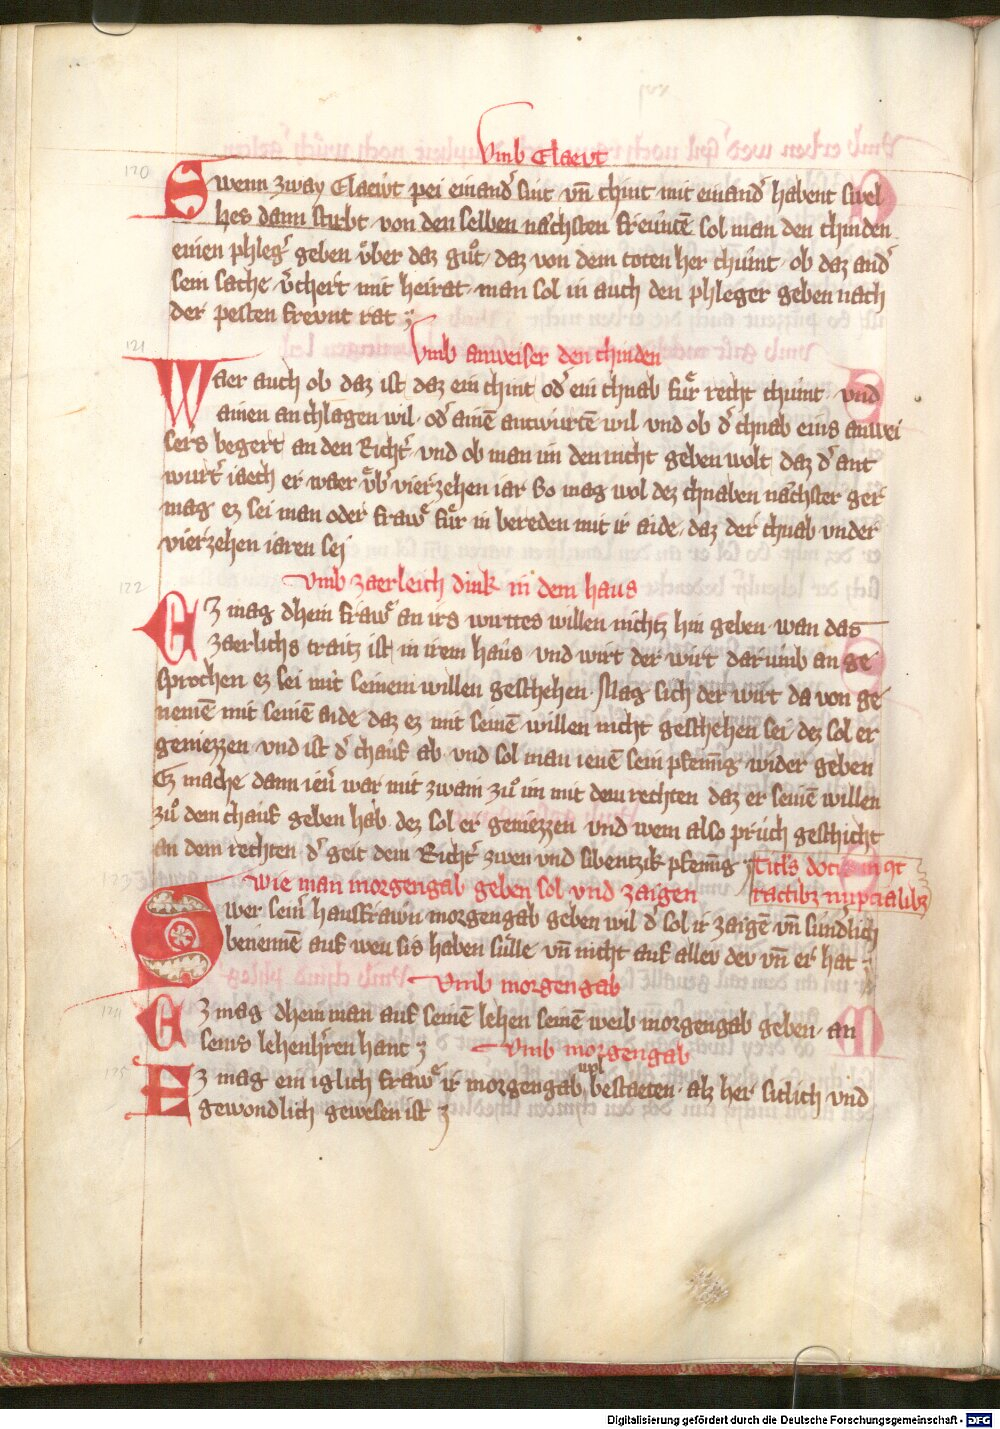 Vmb Claewt
120
Swenn zway Claewt pei einand᷑ sint vn̄ chint mit einand᷑ habent swel
hes dann stirbt von den selben nachsten freuntē sol man den chinden
einen phleg᷑ geben vͤber daz guͦt, daz von dem toten her chumt, ob daz and᷑
sein sache v᷑chert mit heirat, man sol in auch den phleger geben nach
der pesten frevnt rat
121
Vmb anweiser den chinden
Waer auch ob daz ist daz ein chint od᷑ ein chnab fuͤr recht chumt, vnd
ainen anchlagen wil, od᷑ ainē antwurtē wil vnd ob d᷑ chnab eins anwei
sers begert an den Richt᷑ vnd ob man im den nicht geben wolt, daz d᷑ ant
wurt᷑ iaech er waer vͤb᷑ vierzehen iar So mag wol dez chnaben nachster ger
mag ez sei man oder fraw fuͤr in bereden mit ir aide, daz der chnab vnder
vierzehen iaren sei
122
Vmb zaerleich dink in dem haus
Ez mag dhein fraw an irs wirttes willen nichtz hin geben, wan das
zaerlichs traitz ist in irem haus, vnd wirt der wirt darumb an ge
sprochen ez sei mit seinem willen geschehen, Mag sich der wirt da von ge
nemē mit seinē aide daz ez mit seinē willen nicht geschehen sei, dez sol er
geniezzen, vnd ist d᷑ chauf ab, vnd sol man ienē sein pfenīg wider geben
Ez mache dann ien᷑ war mit zwain zuͦ im mit dem rechten daz er seinē willen
zuͦ dem chauf geben hab, dez sol er geniezzen vnd wem also pruch geschicht
an dem rechten d᷑ geit dem Richt᷑ zwen vnd sibentzik pfenīg
123
Wie man morgengab geben sol vnd zaigen
Swer sein᷑ hausfrawn morgengab geben wil d᷑ sol ir zaigē vn̄ sund᷑lich
benennē auf weu sis haben sulle, vn̄ nicht auf aller dev vn̄ er hat
Vmb morgengab
124
Ez mag dhein man auf seinē lehen seinē weib morgengab geben, an
seins lehenh᷑ren hant
Vmb morgengab
125
Ez mag ein iglich fraw ir morgengab wol bestaeten, alz her sitlich vnd
gewondlich gewesen ist
Digitalisierung gefördert durch die Deutsche Forschungsgemeinschaft - DFG